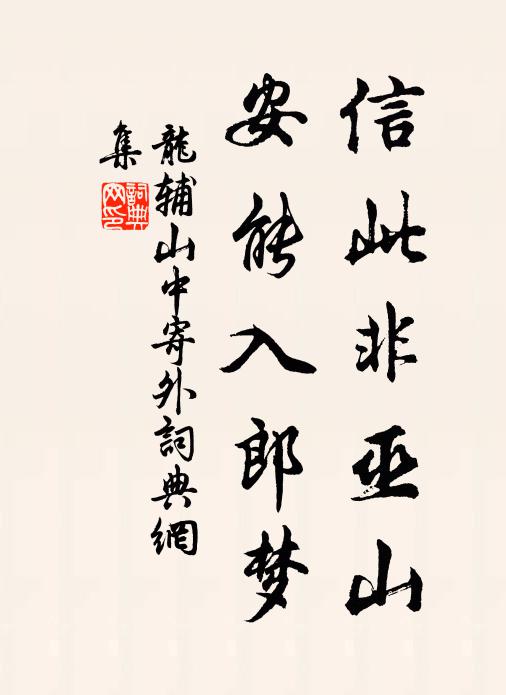 信此非巫山
安能入郎梦
龍辅山中寄外詞典網
集
詞典网印